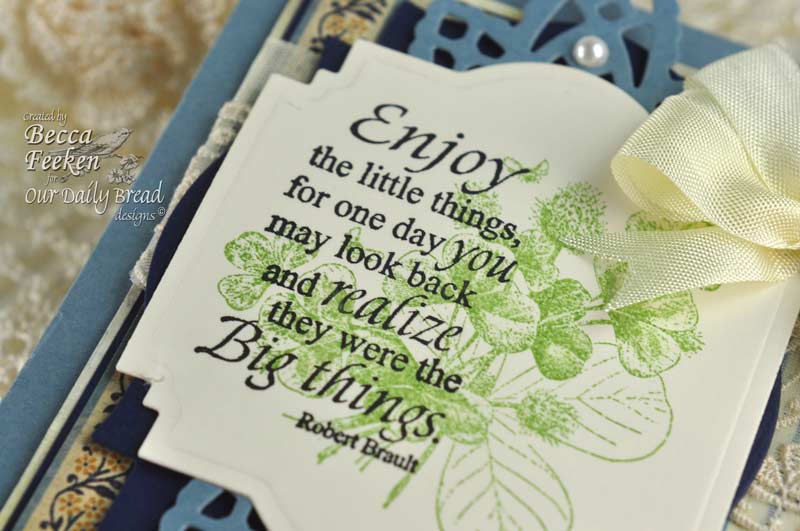 Created by
Becca
Feeken
for
Our Daily Bread
designs©
Enjoy
the little things,
for one day you
may look back
and realize
they were the
Big things.
Robert Brault